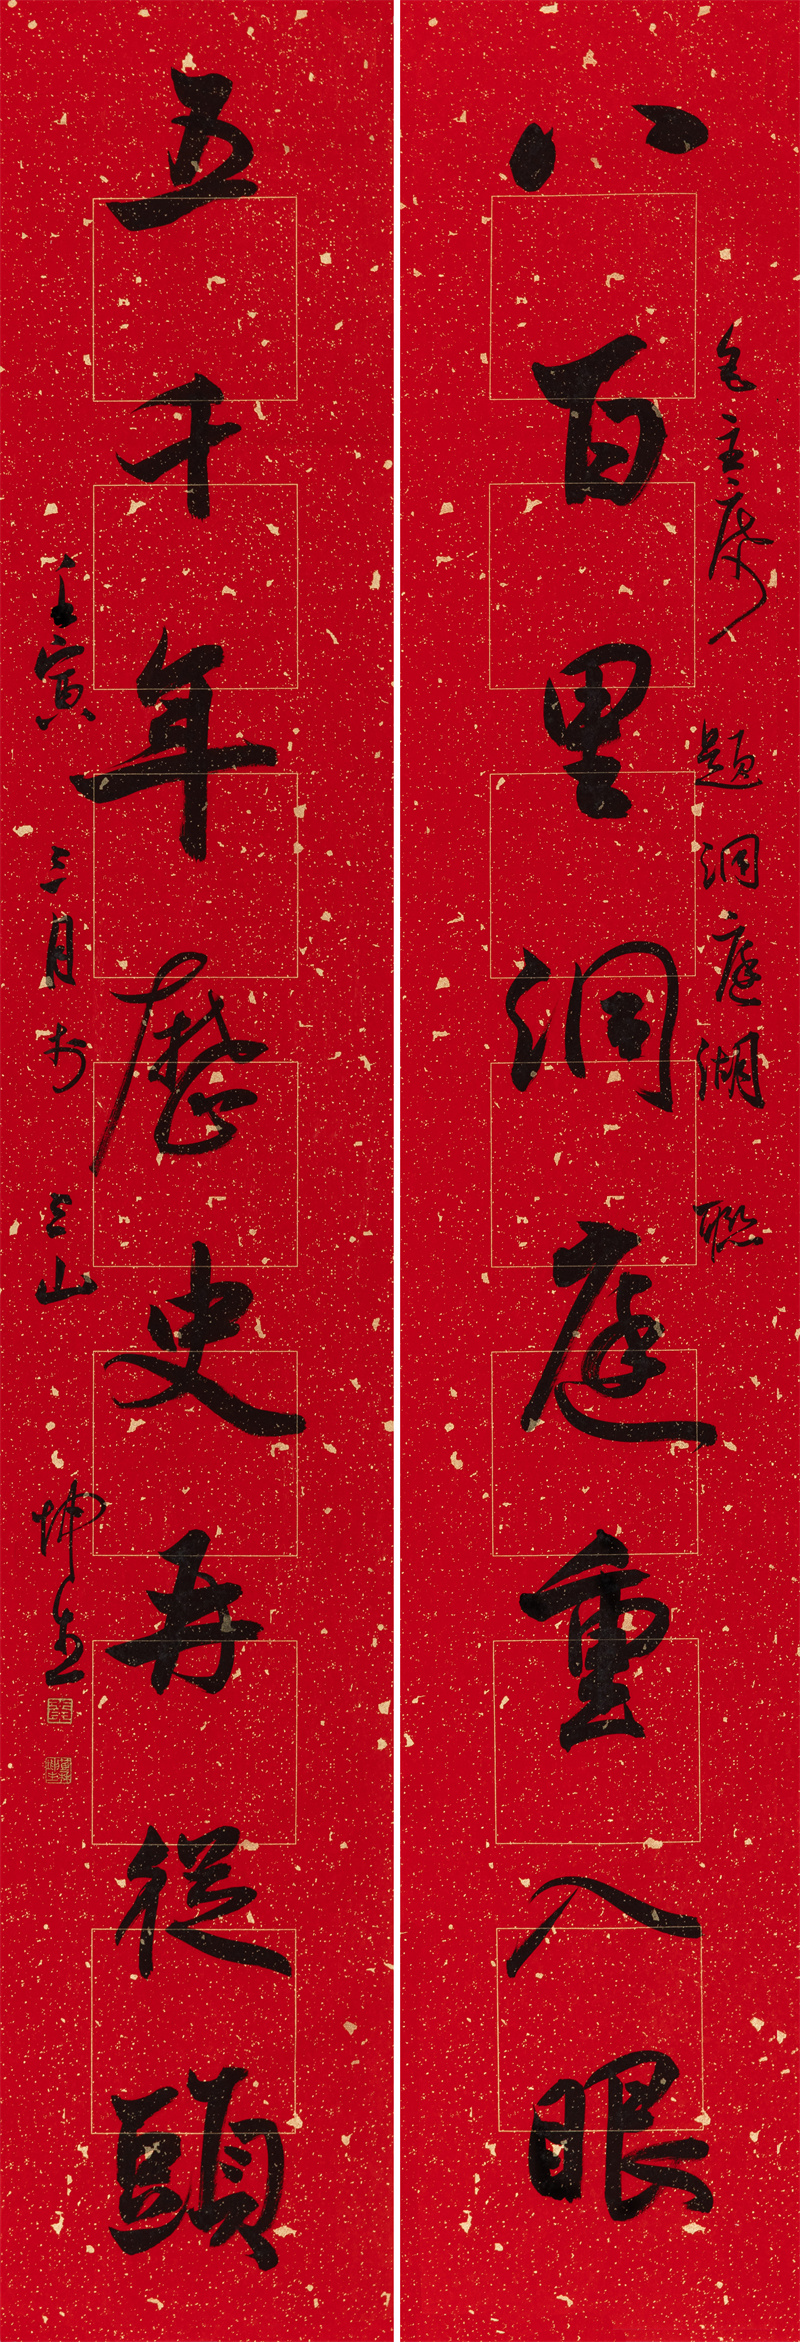 八百里洞庭重入眼
主席 題洞庭湖 聯
五千年歷史再從頭
壬寅 三月於
山
坤